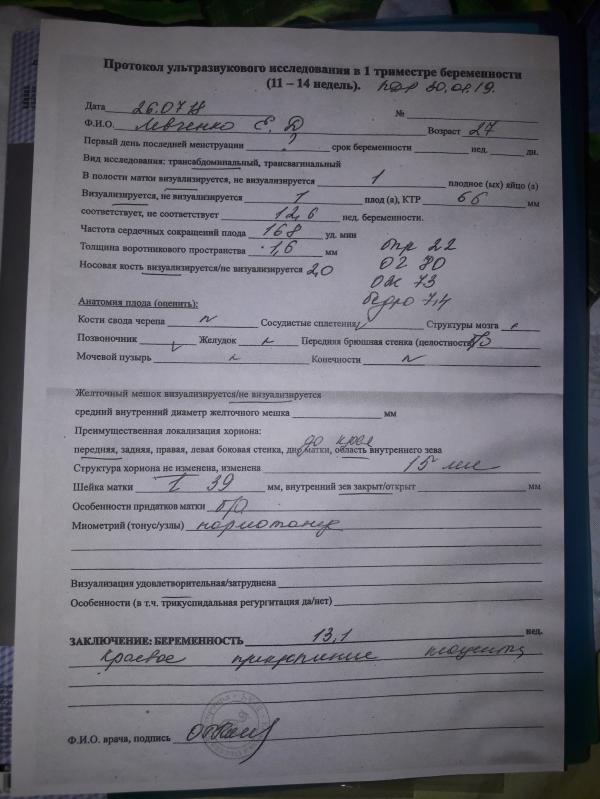 Протокол ультразвукового исследования в 1 триместре беременности
(11 – 14 недель). ПДР 30.01.19.
Дата 26.07.18 №
Ф.И.О. Левченко Е. Д Возраст 27
Первый день последней менструации ? срок беременности нед. дн.
Вид исследования: трансабдоминальный, трансвагинальный
В полости матки визуализируется, не визуализируется 1 плодное (ых) яйцо (а)
Визуализируется, не визуализируется 1 плод (а), КТР 66 мм
соответствует, не соответствует 12,6 нед. беременности.
Частота сердечных сокращений плода 168 уд. мин
Толщина воротникового пространства 1,6 мм бпр 22
Носовая кость визуализируется/не визуализируется 2,0 ог 80
ож 73
бедро 7,4
Анатомия плода (оценить):
Кости свода черепа N Сосудистые сплетения Структуры мозга
Позвоночник Желудок Передняя брюшная стенка (целостность)
Мочевой пузырь Конечности N
Желточный мешок визуализируется/не визуализируется
средний внутренний диаметр желточного мешка мм
Преимущественная локализация хориона: до края
передняя, задняя, правая, левая боковая стенка, дно матки, область внутреннего зева
Структура хориона не изменена, изменена 15 мм
Шейка матки 39 мм, внутренний зев закрыт/открыт мм
Особенности придатков матки б/о
Миометрий (тонус/узлы) нормотонус
Визуализация удовлетворительная/затруднена
Особенности (в т.ч. трикуспидальная регургитация да/нет)
ЗАКЛЮЧЕНИЕ: БЕРЕМЕННОСТЬ 13,1 нед.
Краевое прикрепление плаценты
Ф.И.О. врача, подпись